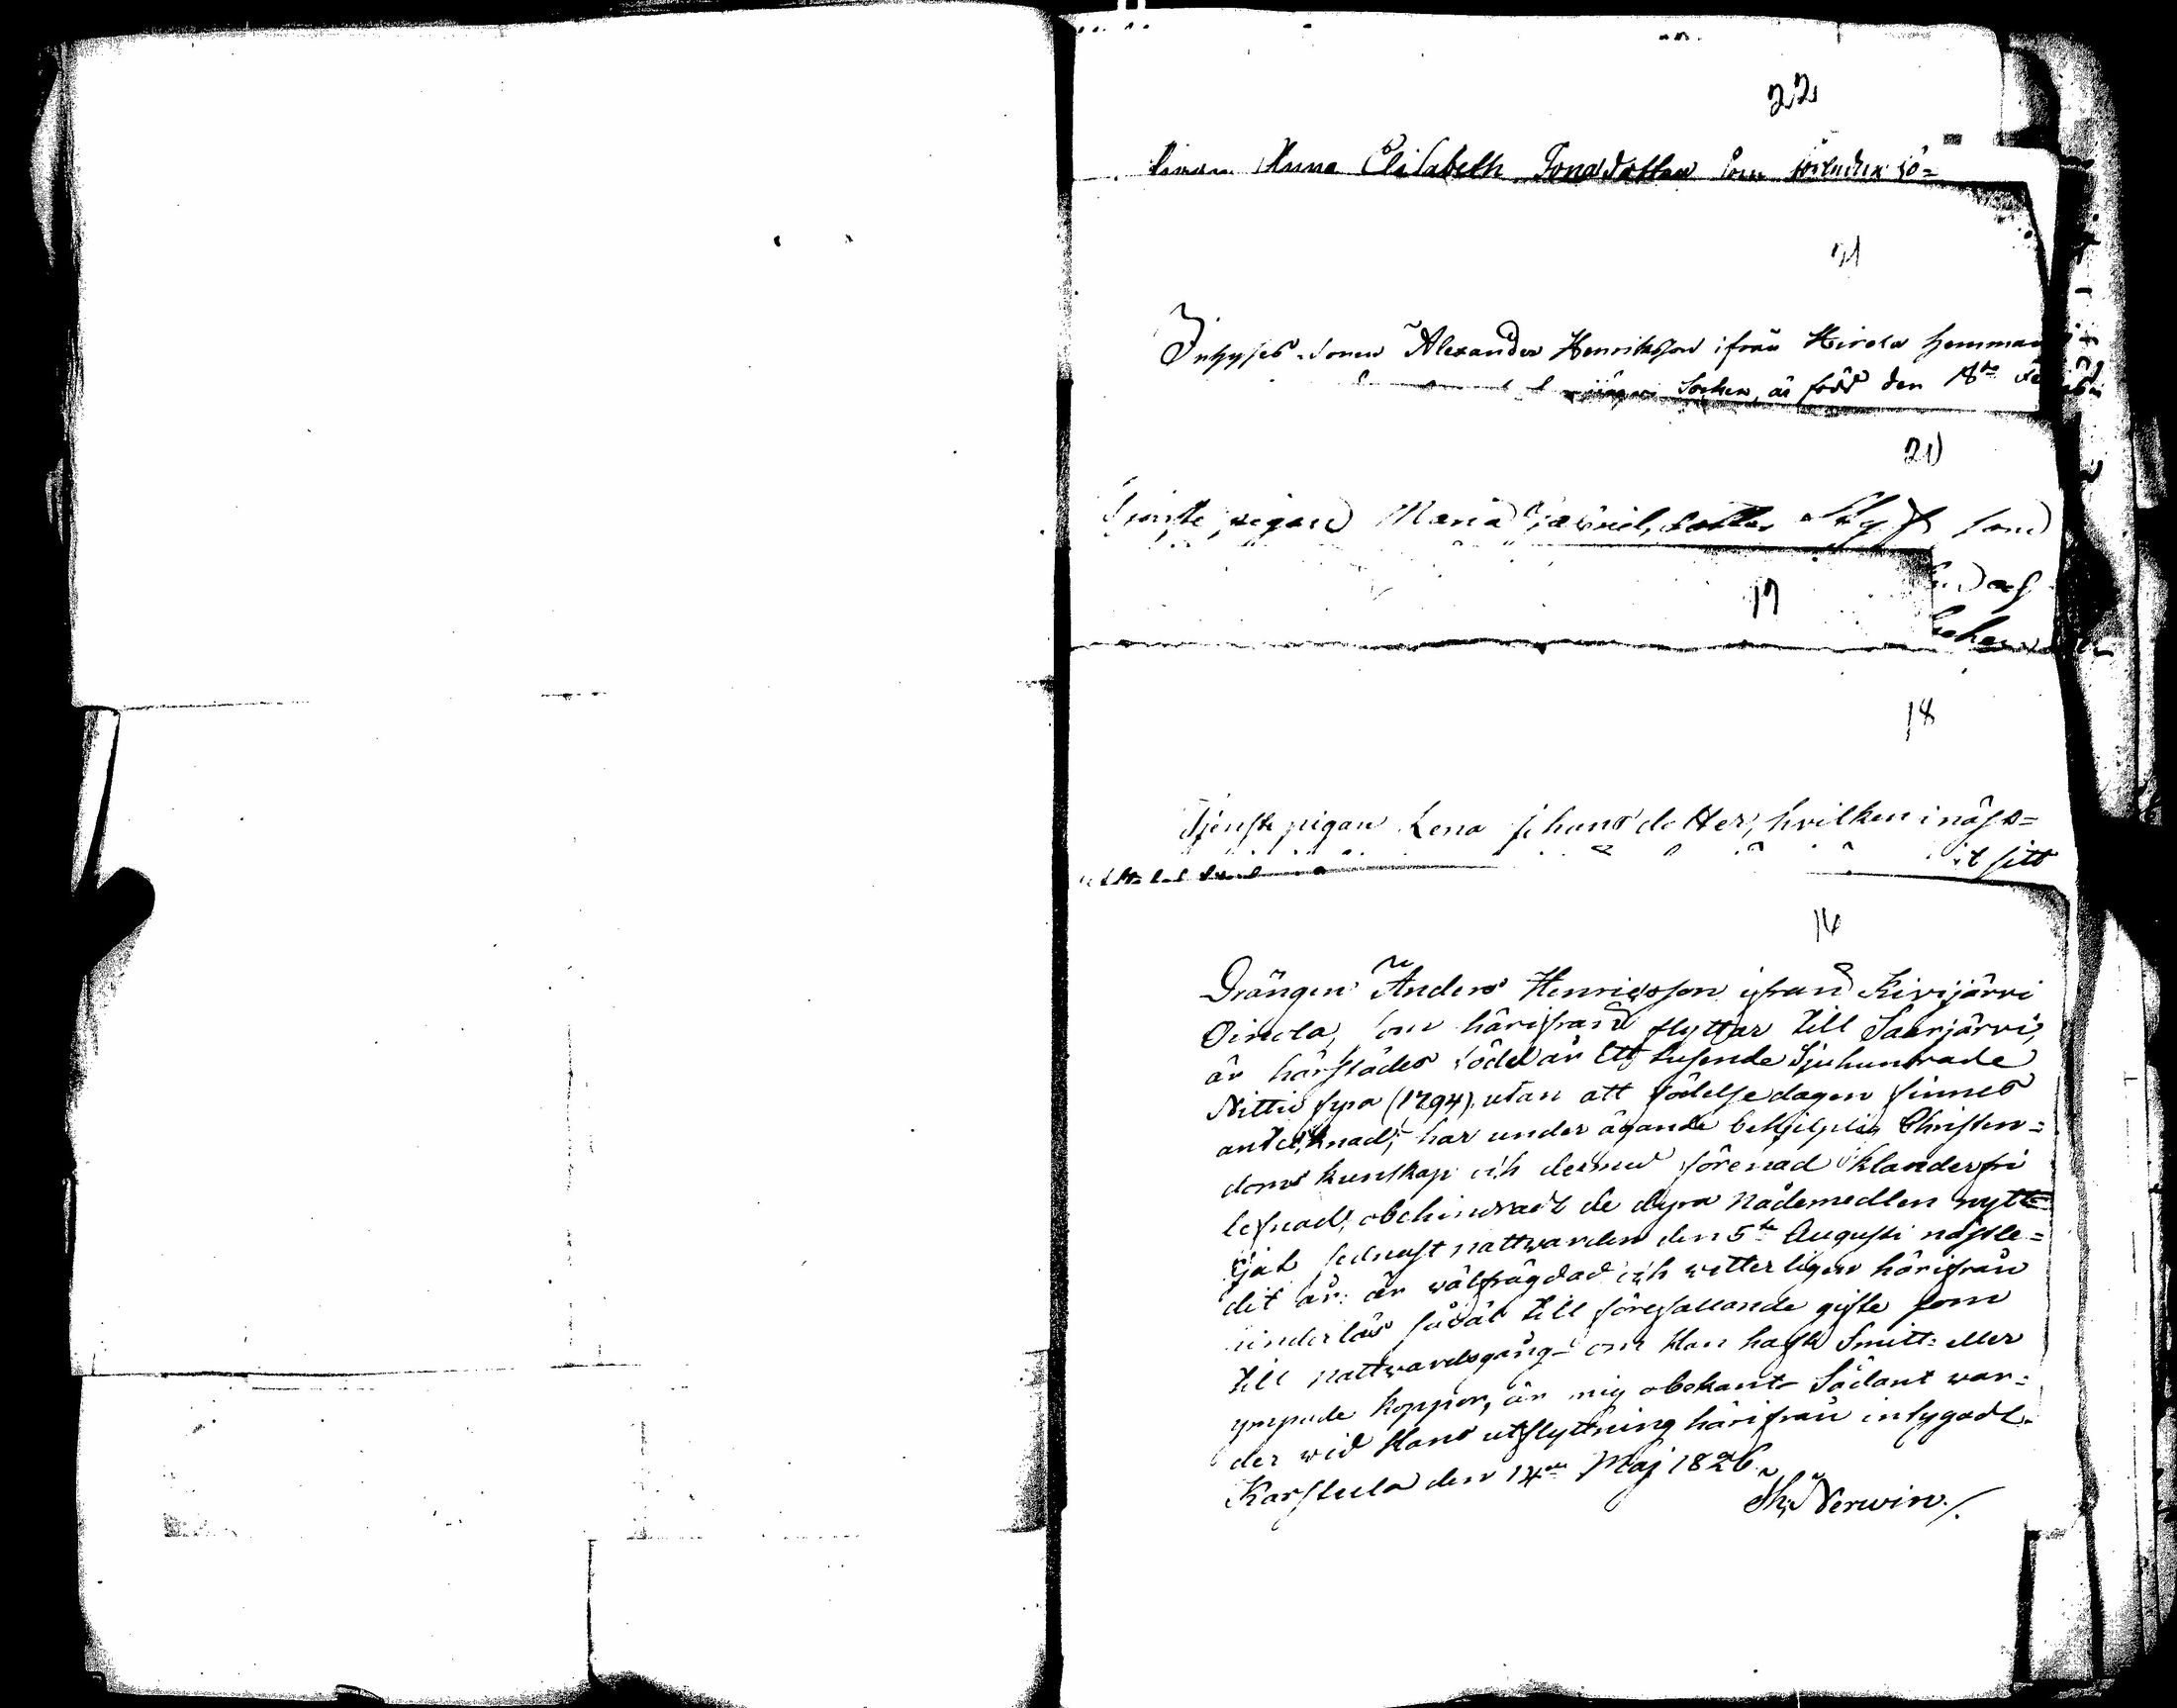 22
Anna Elisabeth Jonasdotter som
21
Inhyses-Sonen Alexander Henriksson ifrån Hirola hemman
Socken, är född den 18de
20
Tjenste pigan Maria Gabriels dotter som
17
18
Tjenste pigan Lena Johans dotter, hvilken i näss=
sitt
16
Drängen Anders Henricsson ifrån Kivijärvi
Oinola, som härifrån flyttar till Saarjärvi,
är härstädes född år Ett tusende Sjuhundrade
Nittio fyra (1794), utan att födelsedagen finnes
antecknad; har under ägande behjelplig Christen=
doms kunskap och dermed förenad oklanderfri
lefnad, obehindradt de dyra nådemedlen nytt=
jat sednast nattwarden den 5te Augusti nästle=
dit år: är wälfrägdad och witterligen härifrån
hinderlös såwäl till förefallande gifte som
till nattwardsgång – om Han haft Smitt= eller
ympade koppor, är mig obekant. Sådant war=
der wid Hans utflyttning härifrån intygadt.
Karstula den 14de Maj 1826.
Nerwin./.